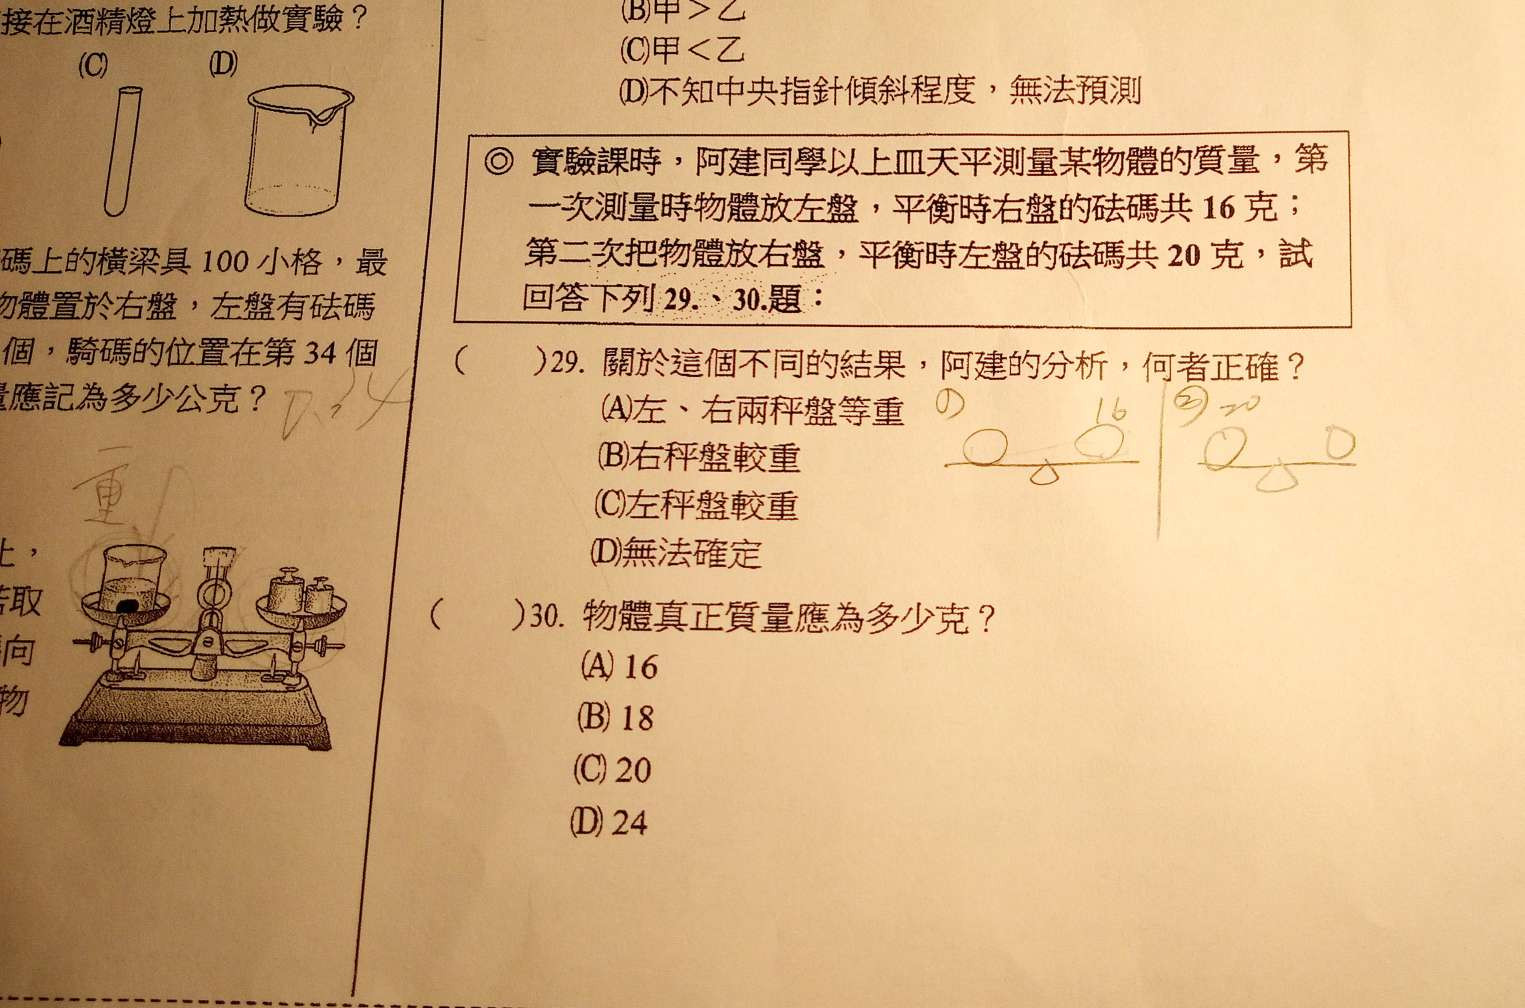 接在酒精燈上加熱做實驗？
(C) (D)
碼上的橫梁具 100 小格，最
物體置於右盤，左盤有砝碼
個，騎碼的位置在第 34 個
量應記為多少公克？
重
上，
若取
向
物
(B)甲＞乙
(C)甲＜乙
(D)不知中央指針傾斜程度，無法預測
◎ 實驗課時，阿建同學以上皿天平測量某物體的質量，第
一次測量時物體放左盤，平衡時右盤的砝碼共 16 克；
第二次把物體放右盤，平衡時左盤的砝碼共 20 克，試
回答下列 29.、30.題：
( )29. 關於這個不同的結果，阿建的分析，何者正確？
(A)左、右兩秤盤等重
① 16 ② 20
(B)右秤盤較重
(C)左秤盤較重
(D)無法確定
( )30. 物體真正質量應為多少克？
(A) 16
(B) 18
(C) 20
(D) 24